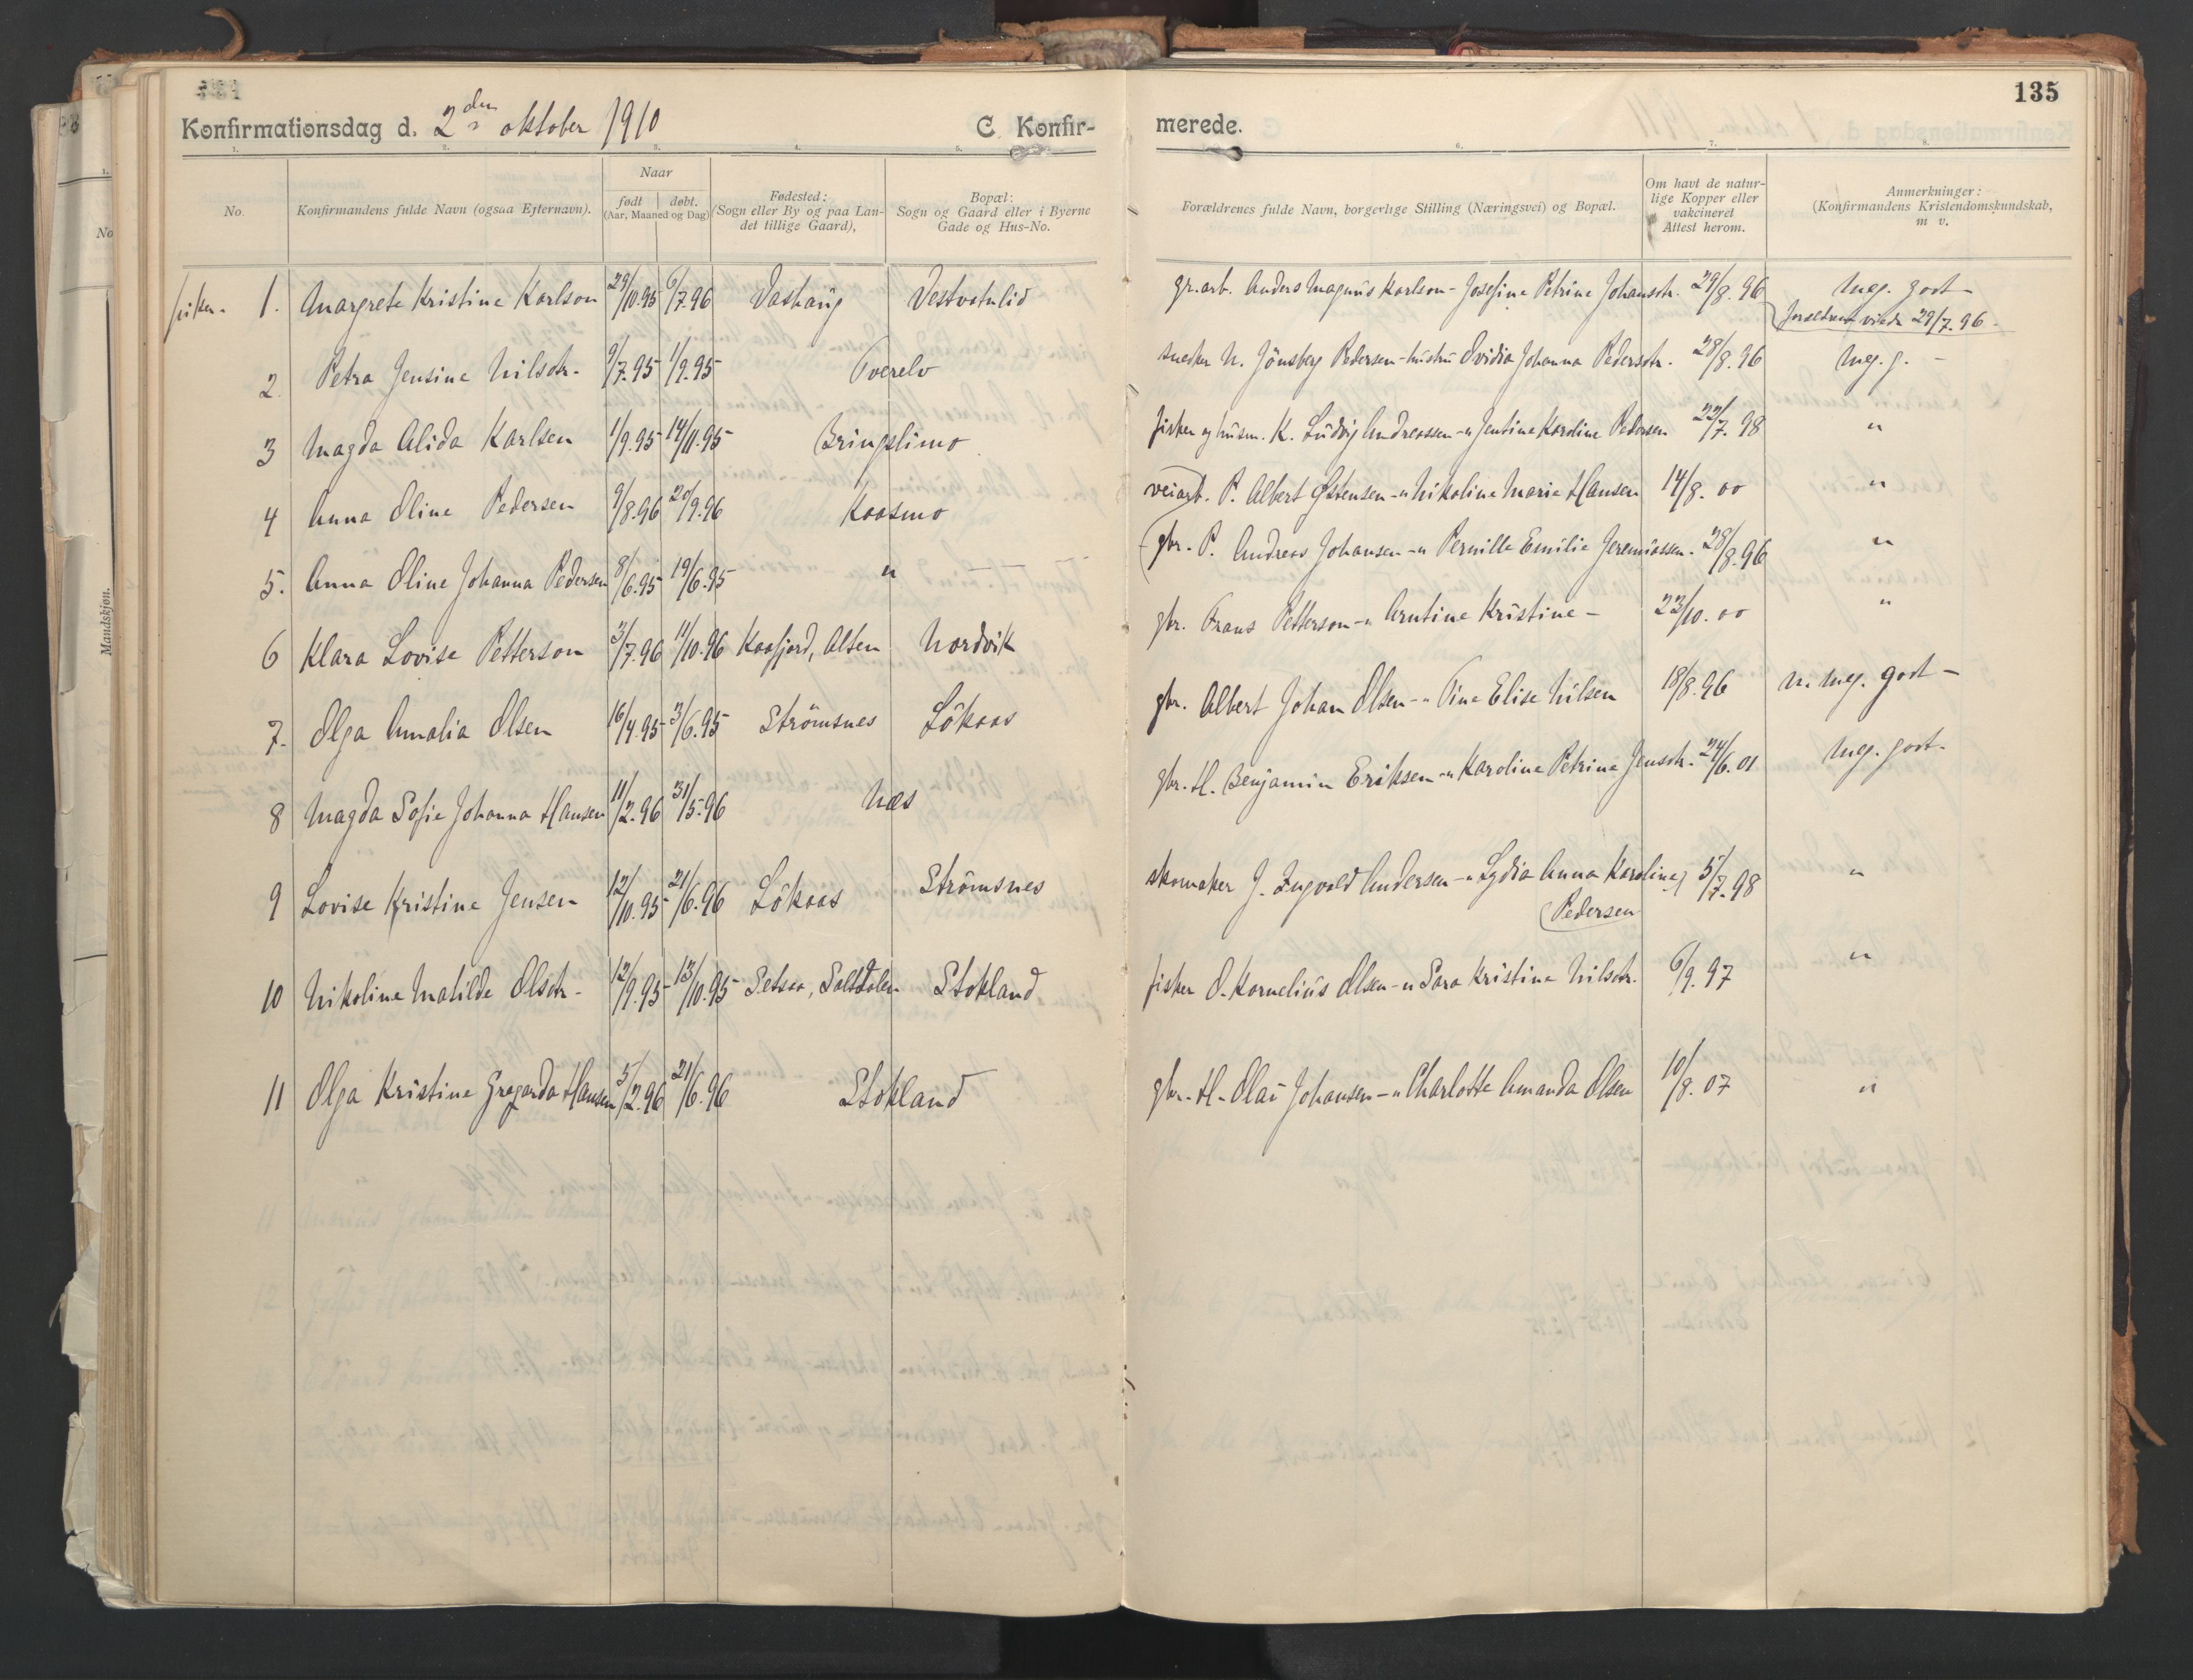 135
Konfirmationsdag d. 2den oktober 1910 C. Konfir-
merede.
1. 2. 3. 4. 5. 6. 7. 8.
No.
Konfirmandens fulde Navn (ogsaa Efternavn).
Naar
født døbt.
(Aar, Maaned og Dag)
Fødested:
(Sogn eller By og paa Lan-
det tillige Gaard),
Bopæl:
Sogn og Gaard eller i Byerne
Gade og Hus-No.
Forældrenes fulde Navn, borgerlige Stilling (Næringsvei) og Bopæl.
Om havt de natur-
lige Kopper eller
vakcineret
Attest herom.
Anmerkninger:
(Konfirmandens Kristendomskundskab,
m v.
No
Mandskjøn.
1. Margrete Kristine Karlson 29/10.95 6/7.96 Vashaug Vestvatnlid gr.arb. Anders Magnus Karlson - Josefine Petrine Johansdtr. 29/8.96 Meg. godt -
viede 29/7.96 -
2. Petra Jensine Nilsdtr. 9/7.95 1/9.95 Tverelv snedker N. Jönsberg Pedersen - hustru Ovidia Johanna Pedersdtr. 28/8.96 Meg. g. -
3 Magda Alida Karlsen 1/9.95 14/11.95 Bringslimo fisker og husm. K. Ludvig Andreassen - " Jentine Karoline Pedersen 22/7.98 "
4 Anna Oline Pedersen 9/8.96 20/9.96 Kaasmo veiarb. P. Albert Östensen - " Nikoline Marie Hansen 14/8.00 "
5. Anna Oline Johanna Pedersen 8/6.95 19/6.95 " gbr. P. Andreas Johansen - " Pernille Emilie Jeremiassen. 28/8.96 "
6 Klara Lovise Petterson 3/7.96 11/10.96 Kaafjord, Alten Nordvik gbr. Frans Petterson - " Arntine Kristine - 23/10.00 "
7. Olga Amalia Olsen 16/4.95 3/6.95 Strömsnes Lökaas gbr. Albert Johan Olsen - " Tine Elise Nilsen 18/8.96 n. meg. godt -
8 Magda Sofie Johanna Hansen 11/2.96 31/5.96 Næs gbr. H. Benjamin Eriksen - " Karoline Petrine Jensdtr. 24/6.01 Meg. godt -
9 Lovise Kristine Jensen 12/10.95 21/6.96 Lökaas Strömsnes skomaker J. Ingvald Andersen - " Lydia Anna Karoline 5/7.98 "
Pedersen
10 Nikoline Matilde Olsdtr. 12/9.95 13/10.95 Setsaa, Saltdalen Stokland fisker O. Kornelius Olsen - " Sara Kristine Nilsdtr. 6/9.97 "
11 Olga Kristine Gregarda Hansen 5/2.96 21/6.96 Stokland gbr. H. Olai Johansen - " Charlotte Amanda Olsen 10/8.07 "